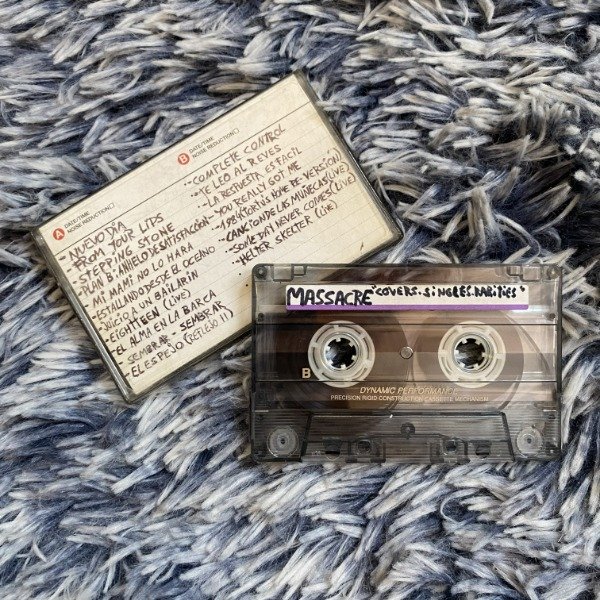 A DATE/TIME
NOISE REDUCTION
- NUEVO DÍA
- FROM YOUR LIPS
- STEPPING STONE
- PLAN B: ANHELO DE SATISFACCIÓN
- MI MAMI NO LO HARA
- ESTALLANDO DESDE EL OCEANO
- JUICIO A UN BAILARIN
- EIGHTTEEN (LIVE)
- EL ALMA EN LA BARCA
- SEMBRAR - SEMBRAR
- EL ESPEJO (REFLEJO II)
B DATE/TIME
NOISE REDUCTION
- COMPLETE CONTROL
- TE LEO AL REVES
- LA RESPUESTA ES FACIL
- YOU REALLY GOT ME
- CANCION DE LAS MUÑECAS (LIVE)
- SOMEDAY NEVER COMES (LIVE)
- HELTER SKELTER (LIVE)
MASSACRE "COVERS.SINGLES.RARITIES"
B
DYNAMIC PERFORMANCE
PRECISION RIGID CONSTRUCTION CASSETTE MECHANISM